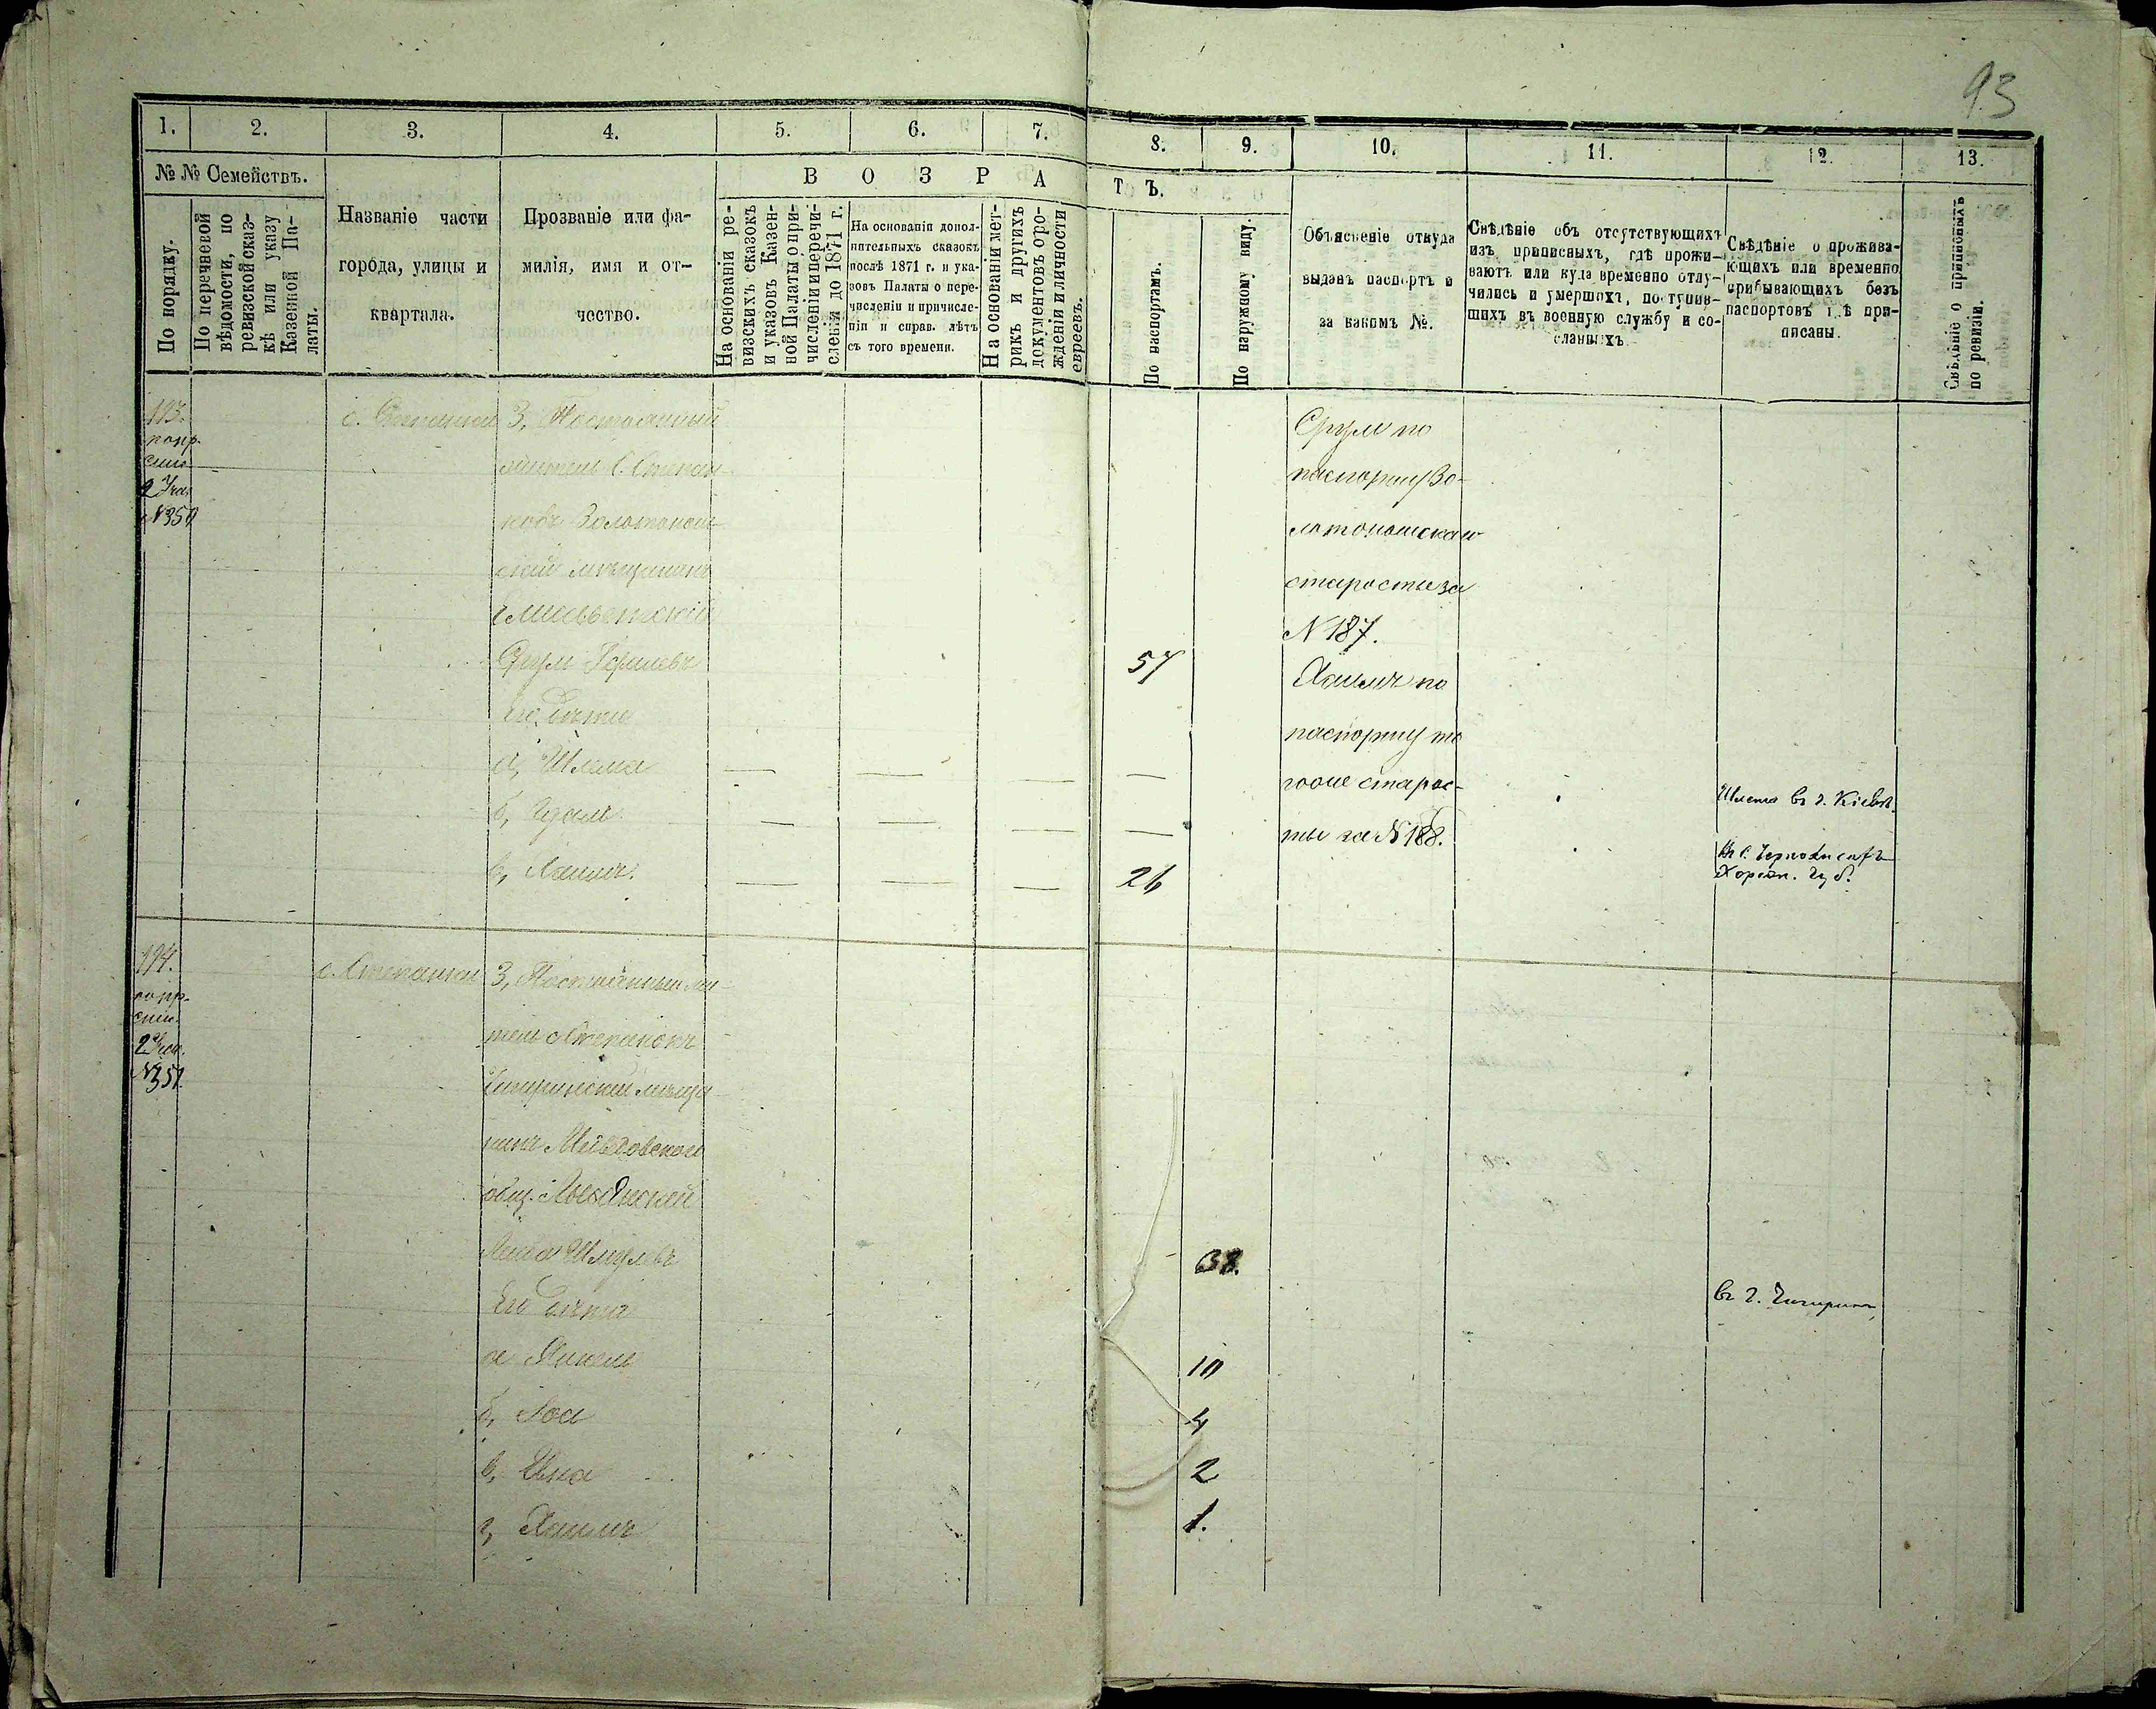 93
1. 2. 3. 4. 5. 6. 7. 8. 9. 10. 11. 12. 13.
№ № Семействъ.
По порядку.
По перечневой
вѣдомости, по
ревизской сказ-
кѣ или указу
Казенной Па-
латы.
Названіе части
города, улицы и
квартала.
Прозваніе или фа-
милія, имя и от-
чество.
ВОЗРАСТЪ.
На основаніи ре-
визскихъ сказокъ
и указовъ Казен-
ной Палаты о при-
численіи и перечи-
сленіи до 1871 г.
На основаніи допол-
нительныхъ сказокъ
послѣ 1871 г. и ука-
зовъ Палаты о пере-
численіи и причисле-
ніи и справ. лѣтъ
съ того времени.
На основаніи мет-
рикъ и другихъ
документовъ о ро-
жденіи и личности
евреевъ.
По паспортамъ.
По наружному виду.
Объясненіе откуда
выданъ паспортъ и
за какимъ №.
Свѣдѣніе объ отсутствующихъ
изъ приписныхъ, гдѣ прожи-
ваютъ или куда временно отлу-
чились и умершихъ, поступив-
шихъ въ военную службу и со-
сланныхъ
Свѣдѣніе о прожива-
ющихъ или временно
прибывающихъ безъ
паспортовъ гдѣ при-
писаны.
Свѣдѣніе о приписныхъ
по ревизіи.
193.
попр.
спис.
2 Уча.
№350
с. Степанки
3, Постоянный
житель С. Степан-
ковъ Золотонош-
скій мѣщанинъ
Срул Гершевъ
Его дѣти
а, Шлема
б,
в, Хаимъ.
57
26
Срул по
паспорту Зо-
лотоношскаго
старосты за
N 187.
Хаимъ по
паспорту то
гоже старос-
ты за N 188.
Шлема въ г. Кіевѣ.
Губ.
194.
попр.
спис.
2 Уча.
№351.
с. Степанки
3, Постоянный жи-
тель с. Степанокъ
Чигиринскій мѣща-
нинъ
общ.
Лейба Шмулевъ
Его дѣти
а Янкель
б,
в,
г, Хаимъ
38.
10
4
2
1.
въ г. Чигиринѣ